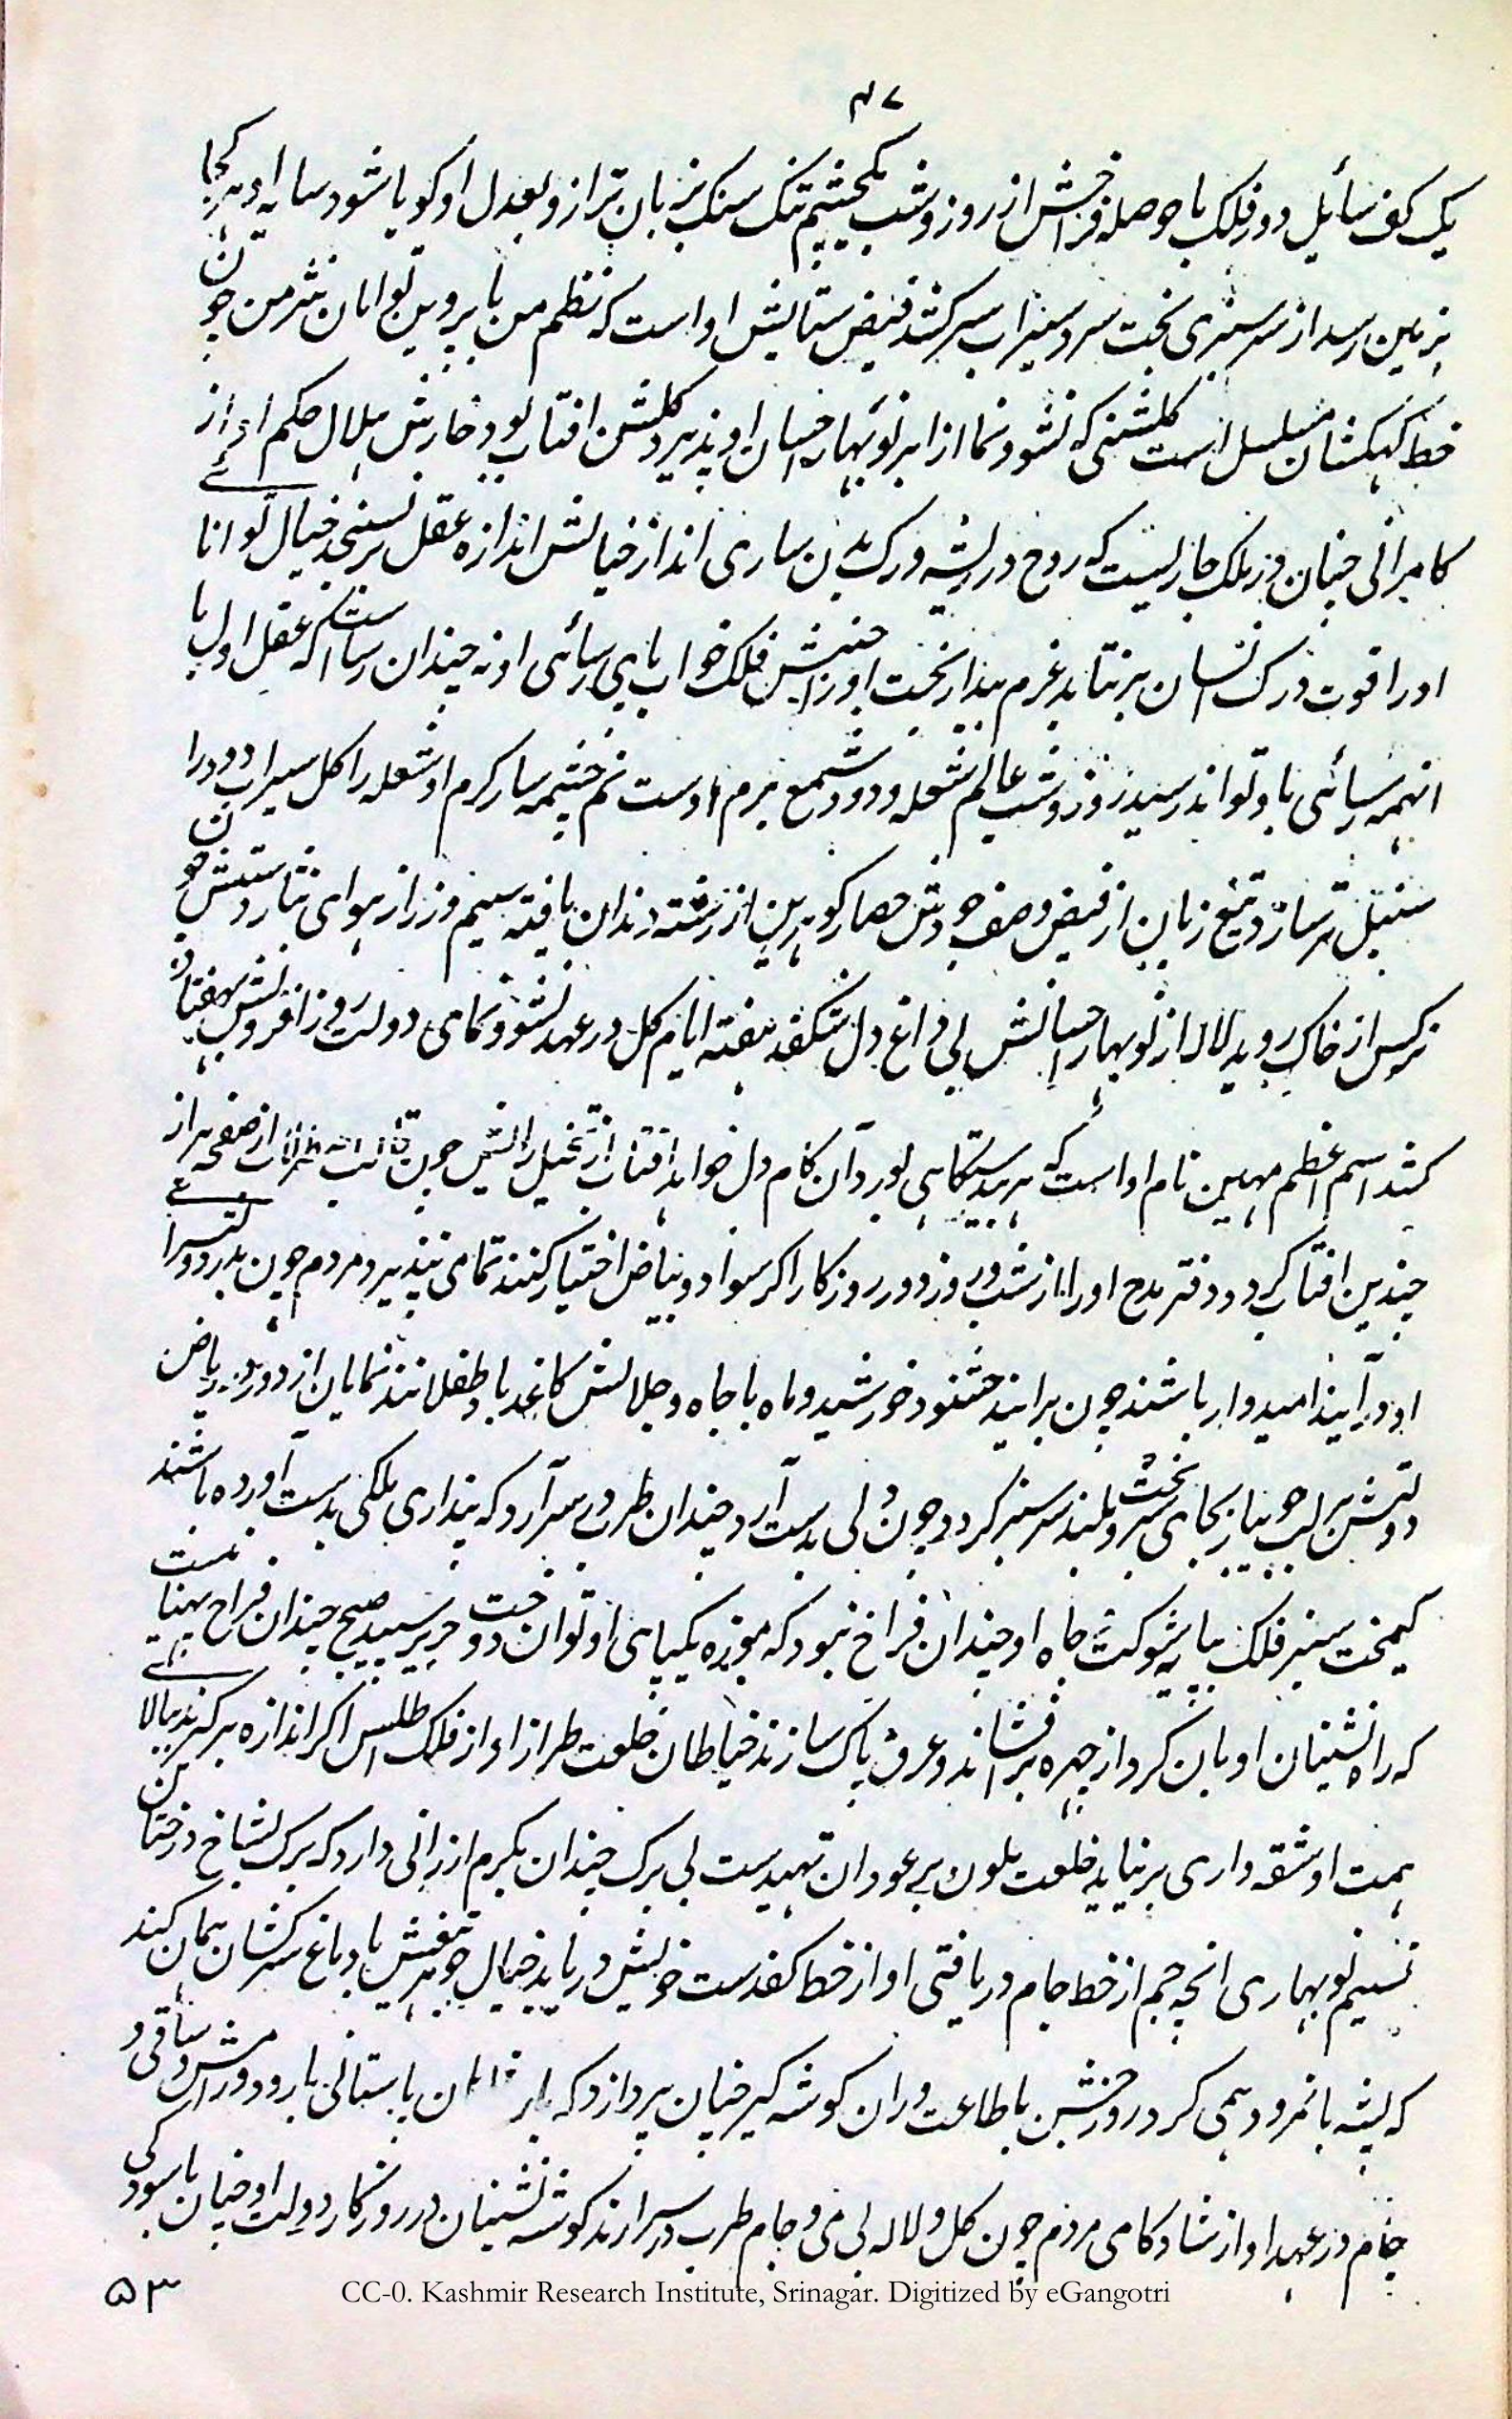 ۴۷
یک کف سائیل دور فلک با حوصله فراخش از روز و شب یکچشم تنک سنک بزبان ترازو بعدل او کویا شود سایه او هر کجا
بزمین رسد از سرسبزی بخت سرو سیراب سرکشد فیض ستایش او است که نظم من با پروین توامان نثر من چون
خط کهکشان مسلسل است کلشنی که نشو و نما از ابر نوبهار احسان او پذیرد کلشن افتاب بود خارش هلال حکم او از
کامرانی چنان در ملک جاریست که روح در ریشه و رک بدن ساری انداز خیالش اندازه عقل برنسنجد خیال توانا
او را قوت درک انسان برنتابد عزم بیدار بخت او را جنبش فلک خواب پای رسائی او نه چندان رساست که عقل اول با
انهمه رسائی باو تواند رسید روز و شب عالم شعله و دود شمع بزم اوست نم چشمه سار کرم او شعله را کل سیراب دود را
سنبل تر سازد تیغ زبان از فیض وصف جودش حصار کوهرین از رشته دندان یافته سیم و زر از هوای نثار دستش چون
نرکس از خاک روید لاله از نوبهار احسانش بی داغ دل شکفد هفته ایام کل در عهد نشو و نمای دولت روز افزونش بهفتاد
کشد اسم اعظم مهین نام او است که بهر دستکاهی بورد آن کام دل خواهد افتاب از تخیل رایش چون از صفحه هزار
چندین افتاب کردد دفتر مدح او را از شب و روز دور روزکار اکر سواد و بیاض اختیار کنند تمامی نپذیرد مردم چون بدر دولتسرا
او در آیند امیدوار باشند چون برایند خشنود خورشید و ماه با جاه و جلالش کاغذ باد طفلانند نمایان از دور در ریاض
دولتش بر لب جویبار بجای سرو بخت بلند سرسبز کردد چون دلی بدست آرد چندان طرب بسر آرد که پنداری ملکی بدست آورده باشند
کیمخت سبز فلک بپایه شوکت جاه او چندان فراخ نبود که موزه یکپای او توان دوخت حریر سپید صبح چندان فراخ پهنا نیست
که راه نشینان او بان کرد از چهره برفشانند و عرق پاک سازند خیاطان خلعت طراز او از فلک اطلس اکر اندازه برکیرند ببالای
همت او شقه واری برنیاید خلعت ملون بر عوران تهیدست بی برک چندان بکرم ارزانی دارد که برک بشاخ درختان
نسیم نوبهاری انچه جم از خط جام دریافتی او از خط کف دست خویش دریابد خیال جوهر تیغش با دماغ سرکشان همان کند
که پشه با نمرود همی کرد در روز جشن با طاعت وران کوشه کیر چنان پردازد که باستانی بار و در دورانش ساقی و
جام در عهد او از شادکامی مردم چون کل و لاله بی می و جام طرب در سر ارند کوشه نشینان در روزکار دولت او چنان باسودکی
۵۳
CC-0. Kashmir Research Institute, Srinagar. Digitized by eGangotri